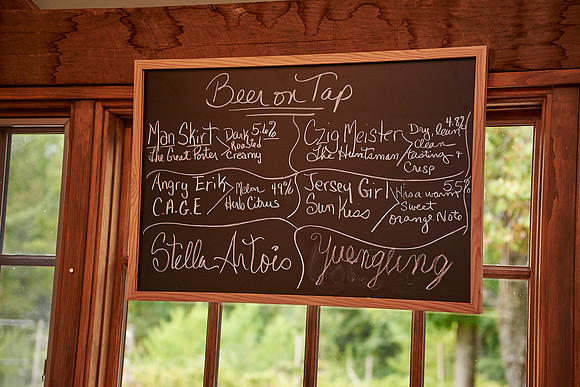 Beer on Tap
Man Skirt
The Great Porter
Dark 5.6%
Roasted
Creamy
Czig Meister
The Huntsman
Dry, lean 4.8%
clean
tasting +
Crisp
Angry Erik
C.A.G.E
Melon 4.9%
Herb Citrus
Jersey Girl
Sun Kiss
Has a warm 5.5%
Sweet
orange Note
Stella Artois
Yuengling